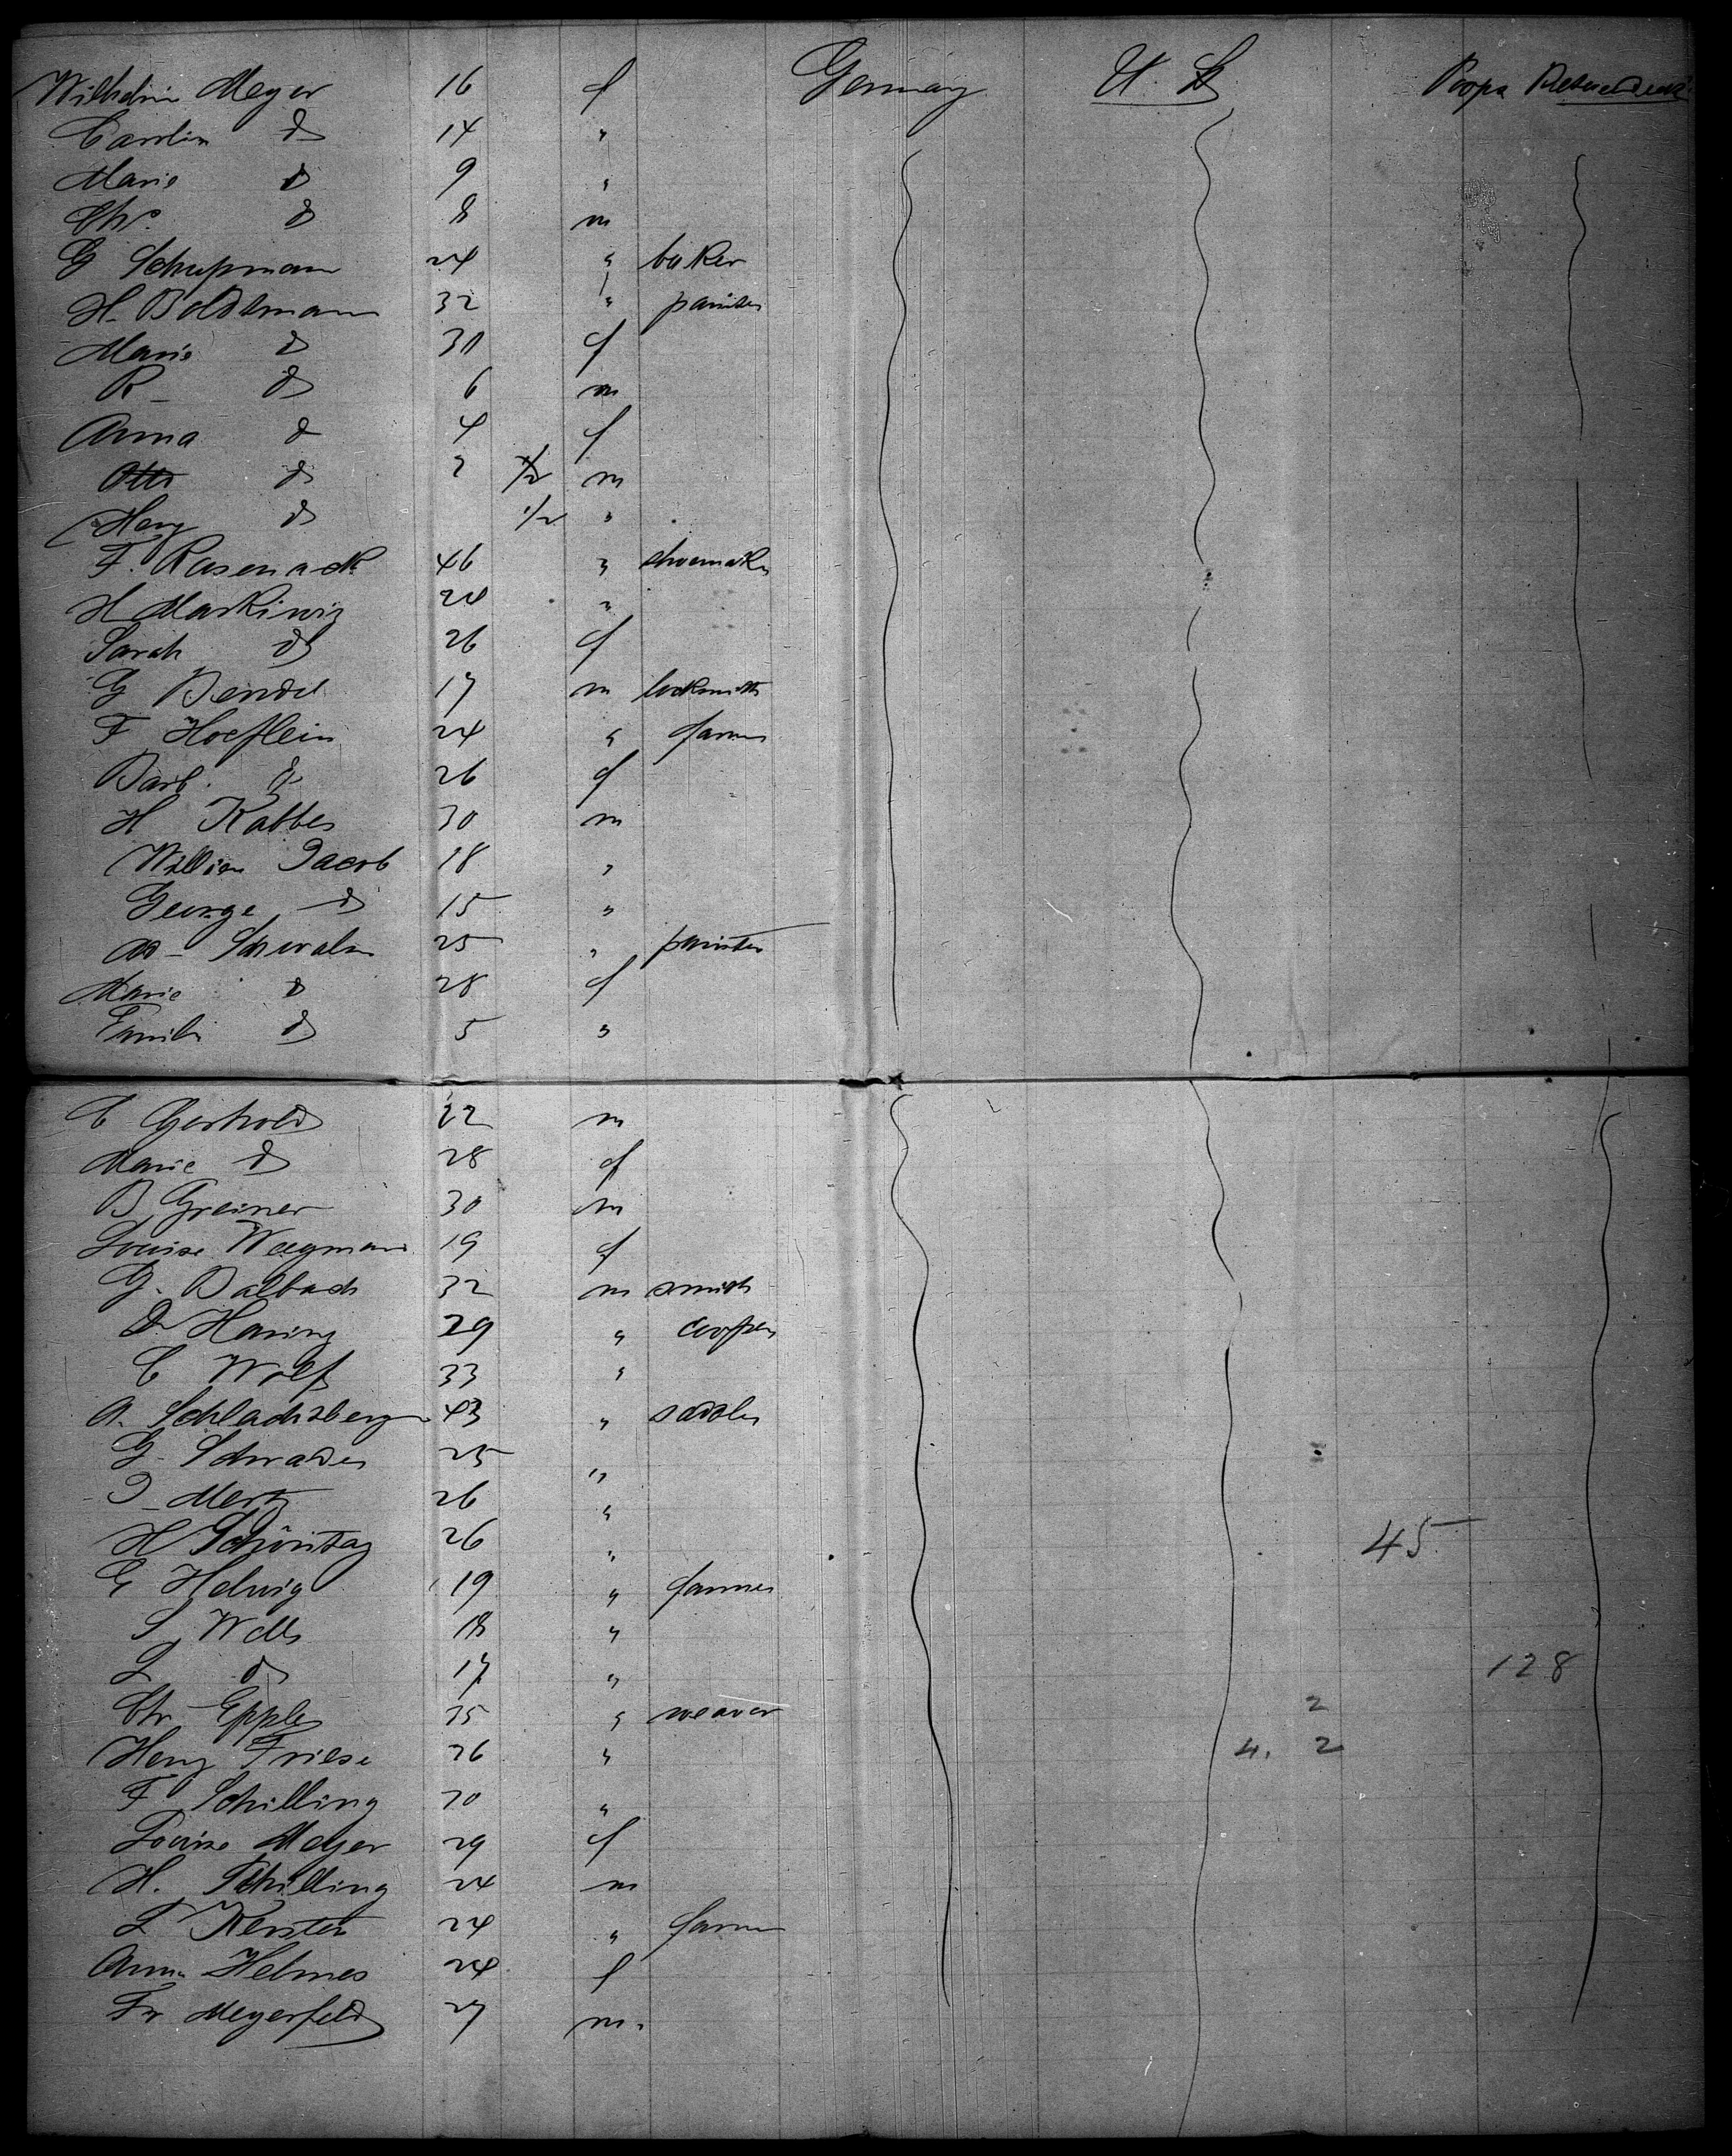 Wilhelmi Meyer 16 f Germany U. S.
Carolin do 14 "
Marie do 9 "
Chr. do 8 m
G Schupmann 24 " baker
H. Boldtmann 32 " painter
Marie do 30 f
R- do 6 m
Anna do 4 f
Otto do 2 1/2 m
Heny do 1/2 "
F. Rasenack 46 " shoemaker
H Markiwiz 24 "
Sarah do 26 f
G Bendel 17 m locksmith
F Hoeflein 24 " farmer
Barb. do 26 f
H Kabbes 30 m
William Jacob 18 "
George do 15 "
Ad- Schwalm 25 " painter
Marie do 28 f
Emili do 5 "
C Gerhold 22 m
Marie do 28 f
B Greiner 30 m
Louise Wegmann 19 f
G. Balbach 32 m smith
D Haring 29 " cooper
C Wolf 33 "
A. Schlachzberger 43 " sadler
G- Schrader 25 "
J- Mertz 26 "
H Schöntag 26 " 45
G Helwig 19 " farmer
S Wells 18 "
L do 17 " 128
Chr Epple 35 " weaver 2
Heny Friese 26 " 4. 2
F Schilling 30 "
Louise Meyer 29 f
H. Schilling 24 m
L Kersten 24 " farmer
Anna Helmes 24 f
Fr Meyerfeld 27 m.